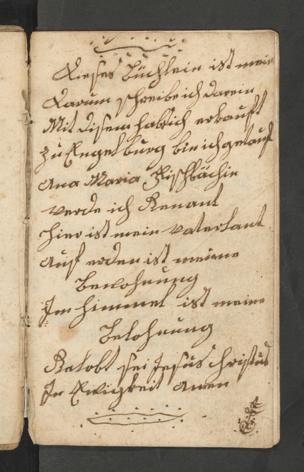 Dieses Büchlein ist mein
Darum schreibe ich darein
Mit disem hab ich erkauft
Zu Engelburg bin ich getauft
Ana Maria Fischbächin
werde ich Genant
Hier ist mein vaterlant
Auf erden ist meine
Bewohnung
Im Himmel ist meine
Belohnung
Gelobt sei Jesus Christus
In Ewigkeit Amen